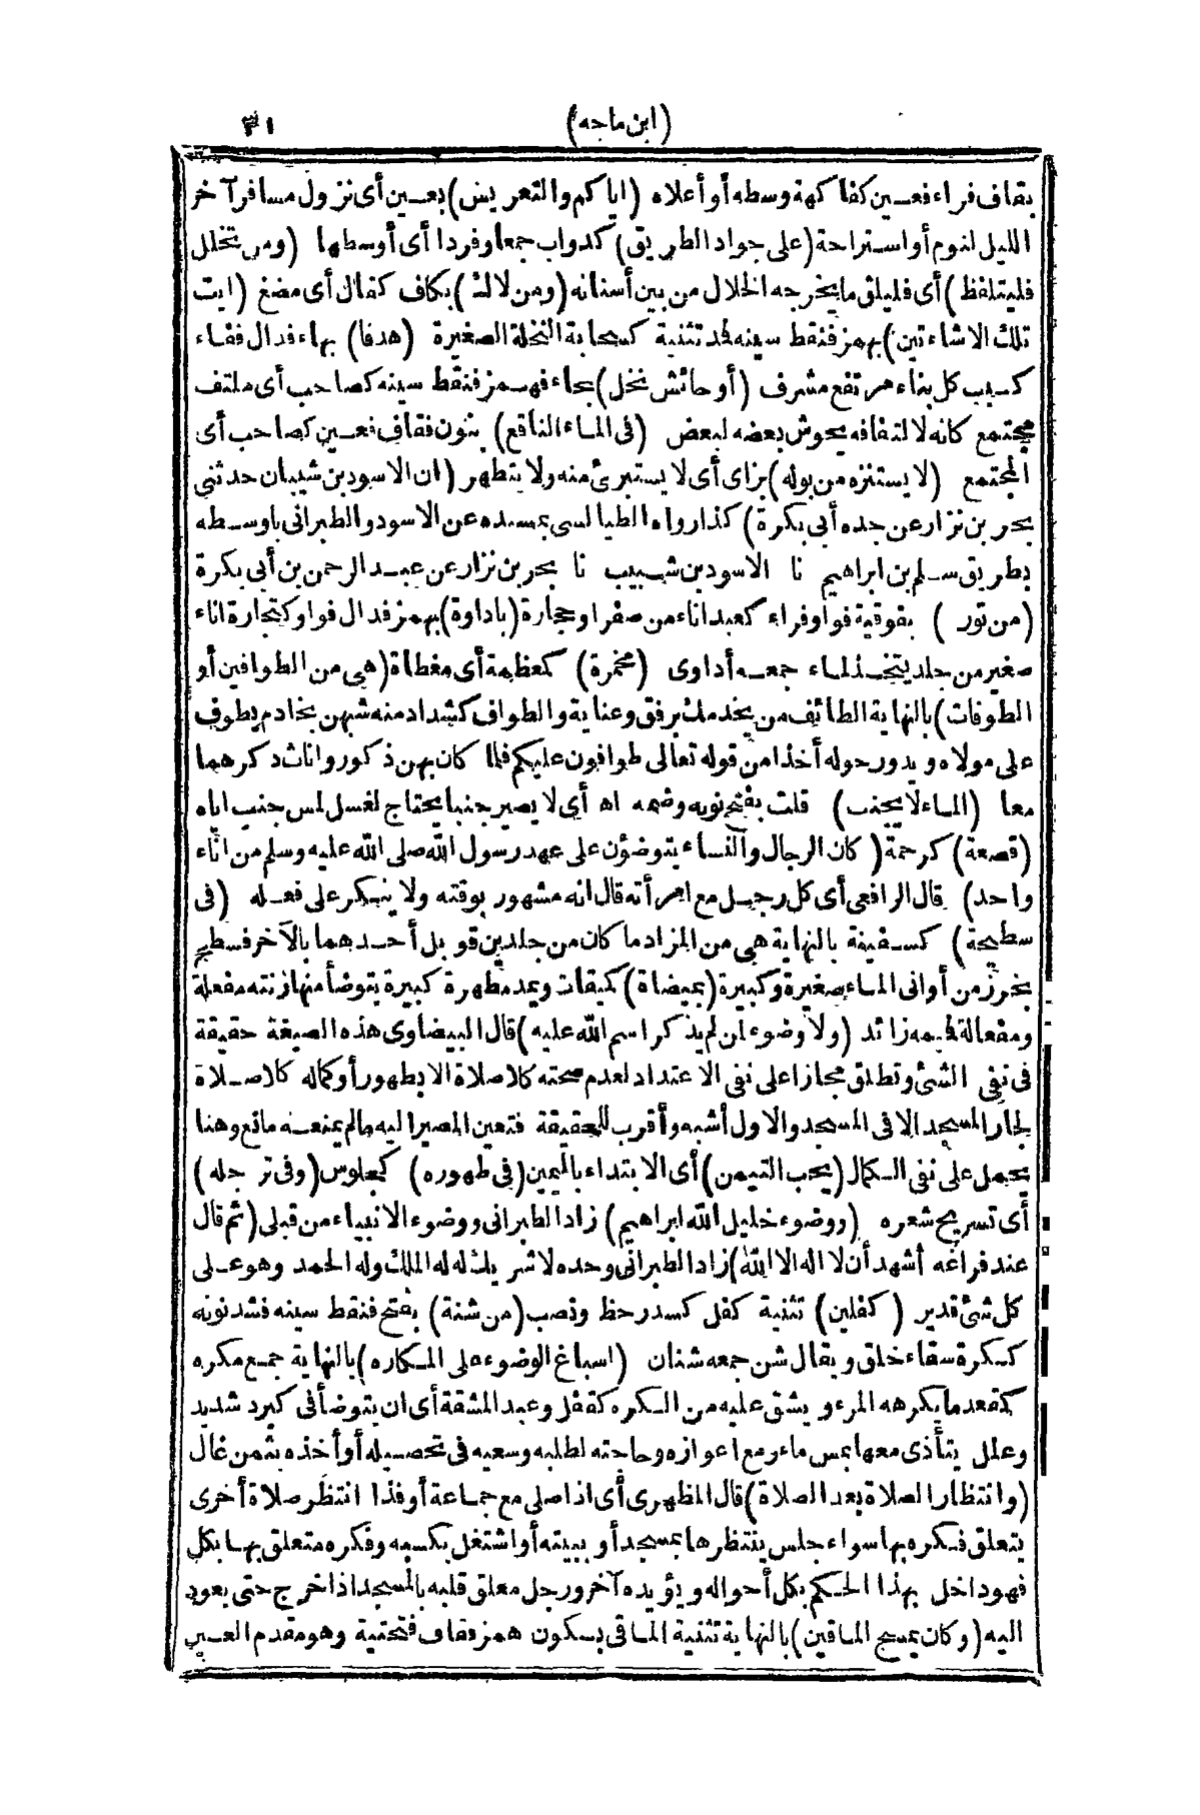 (ابن ماجه) ٣١
بقاف فراء فعين كفاكهة وسطه أو أعلاه (اياكم والتعريس) بعين أى نزول مسافر آخر
الليل لنوم أو استراحة (على جواد الطريق) كدواب جمعا وفردا أى أوسطها (ومن تخلل
فليتلفظ) أى فليلق ما يخرجه الخلال من بين أسنانه (ومن لاك) بكاف كقال أى مضغ (ايت
تلك الاشاءتين) بهمز فنقط سينه فمد تثنية كسحابة النخلة الصغيرة (هدفا) بهاء فدال ففاء
كسبب كل بناء مرتفع مشرف (أو حائش نخل) بحاء فهمز فنقط سينه كصاحب أى ملتف
مجتمع كانه لالتفافه يحوش بعضه لبعض (فى الماء الناقع) بنون فقاف فعين كصاحب أى
المجتمع (لا يستنزه من بوله) بزاى أى لا يستبرئ منه ولا يتطهر (ان الاسود بن شيبان حدثنى
بحر بن نزار عن جده أبى بكرة) كذا رواه الطيالسى بمسنده عن الاسود والطبرانى باوسطه
بطريق سلم بن ابراهيم نا الاسود بن شبيب نا بحر بن نزار عن عبد الرحمن بن أبى بكرة
(من تور) بفوقية فواو فراء كعبد اناء من صفر او حجارة (باداوة) بهمز فدال فواو كتجارة اناء
صغير من جلد يتخذ للماء جمعه أداوى (مخمرة) كمعظمة أى مغطاة (هى من الطوافين أو
الطوفات) بالنهاية الطائف من يخدمك برفق وعناية والطواف كشداد منه شبهن بخادم يطوف
على مولاه ويدور حوله أخذا من قوله تعالى طوافون عليكم فلما كان بهن ذكور واناث ذكرهما
معا (الماء لا يجنب) قلت بفتح نونه وضمه اه أى لا يصير جنبا يحتاج لغسل لمس جنب اياه
(قصعة) كرحمة (كان الرجال والنساء يتوضؤن على عهد رسول الله صلى الله عليه وسلم من اناء
واحد) قال الرافعى أى كل رجل مع امرأته قال انه مشهور بوقته ولا ينكر على فعله (فى
سطيحة) كسفينة بالنهاية هى من المزاد ما كان من جلدين قوبل أحدهما بالآخر فسطح
بخرز من أوانى الماء صغيرة وكبيرة (بميضاة) كميقات ويمد مطهرة كبيرة يتوضأ منها زنته مفعلة
ومفعالة فميمه زائد (ولا وضوء لمن لم يذكر اسم الله عليه) قال البيضاوى هذه الصيغة حقيقة
فى نفى الشئ وتطلق مجازا على نفى الاعتداد لعدم صحته كلا صلاة الا بطهور أو كماله كلا صلاة
لجار المسجد الا فى المسجد والاول أشبه وأقرب للحقيقة فتعين المصير اليه ما لم يمنعه مانع وهنا
يحمل على نفى الكمال (يحب التيمن) أى الابتداء باليمين (فى طهوره) كجلوس (وفى ترجله)
أى تسريح شعره (ووضوء خليل الله ابراهيم) زاد الطبرانى ووضوء الانبياء من قبلى (ثم قال
عند فراغه أشهد أن لا اله الا الله) زاد الطبرانى وحده لا شريك له له الملك وله الحمد وهو على
كل شئ قدير (كفلين) تثنية كفل كسدر حظ ونصب (من شنة) بفتح فنقط سينه فشد نونه
ككرة سقاء خلق ويقال شن جمعه شنان (اسباغ الوضوء على المكاره) بالنهاية جمع مكره
كمقعد ما يكرهه المرء ويشق عليه من الكره كقفل وعبد المشقة أى ان يتوضأ فى كبرد شديد
وعلل يتأذى معها بمس ماء ومع اعوازه وحاجته لطلبه وسعيه فى تحصيله أو أخذه بثمن غال
(وانتظار الصلاة بعد الصلاة) قال المظهرى أى اذا صلى مع جماعة أو فذا انتظر صلاة أخرى
يتعلق فكره بها سواء جلس ينتظرها بمسجد أو ببيته أو اشتغل بكسبه وفكره متعلق بها بكل
فهو داخل بهذا الحكم بكل أحواله ويؤيده آخر ورجل معلق قلبه بالمسجد اذا خرج حتى يعود
اليه (وكان يمسح الماقين) بالنهاية تثنية الماقى بسكون همز وقاف فتحتية وهو مقدم العين